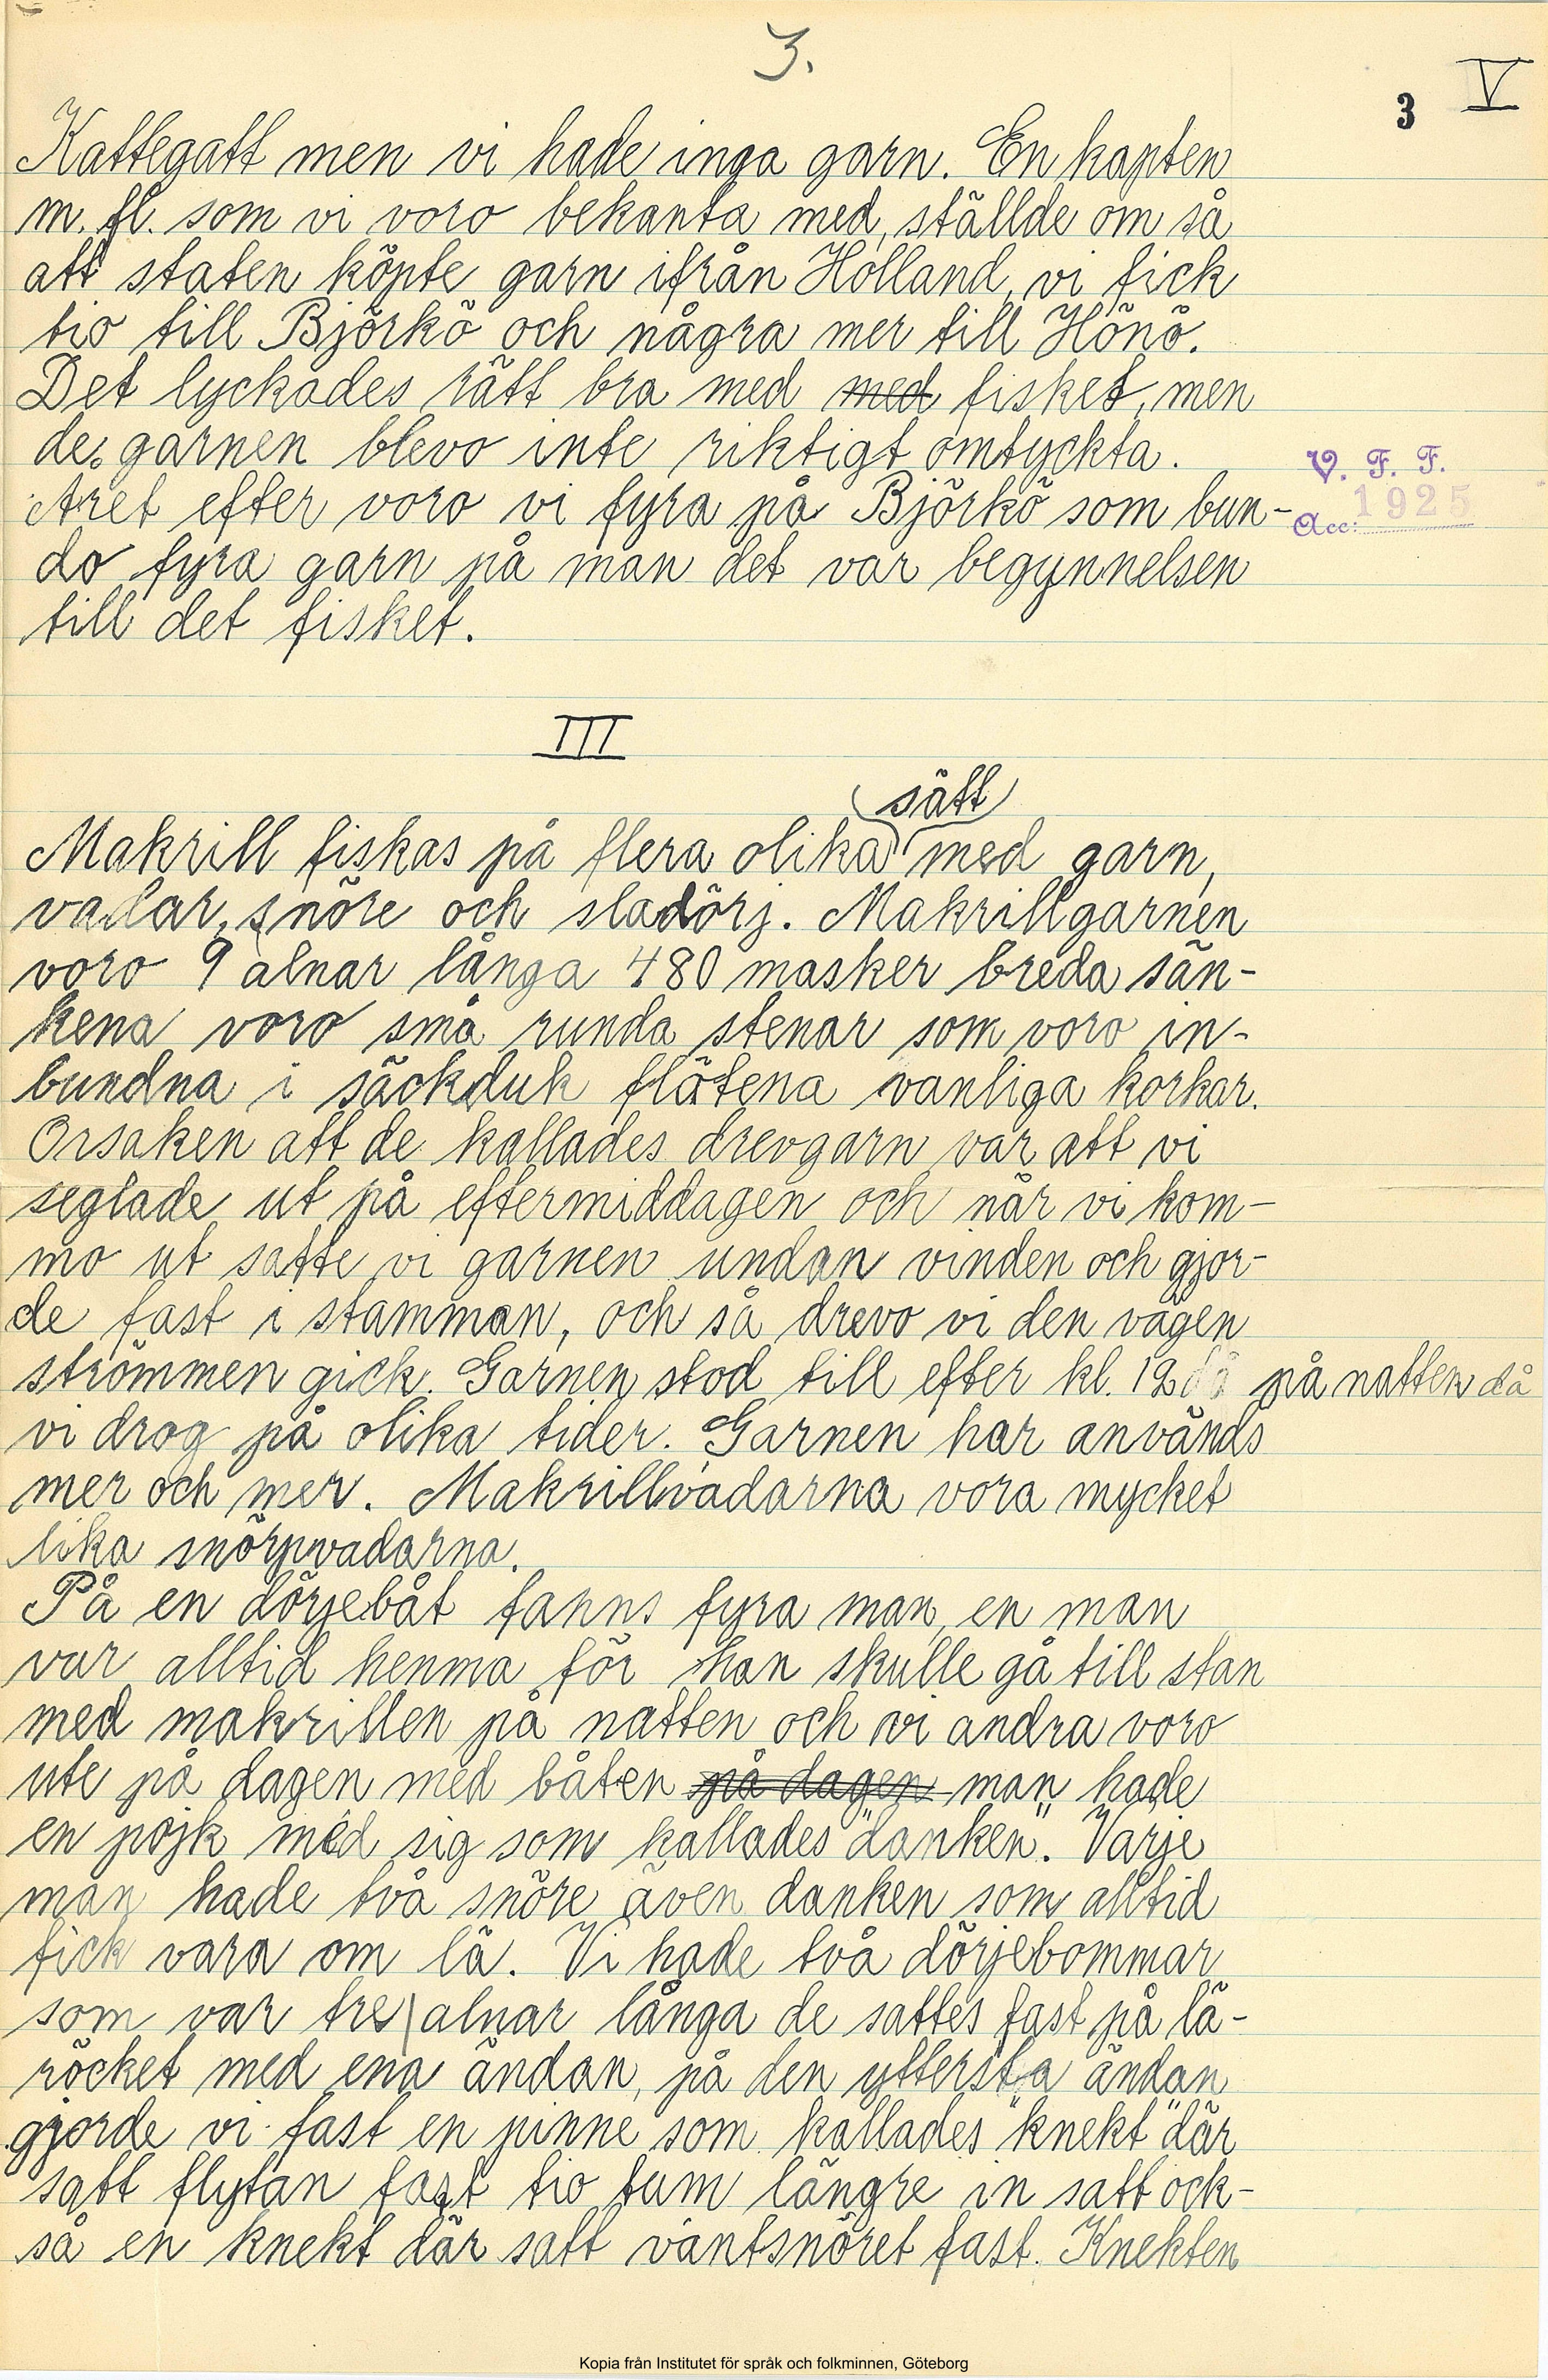 3.
3 V
Kattegatt men vi hade inga garn. En kapten
m. fl. som vi voro bekanta med, ställde om så
att staten köpte garn ifrån Holland, vi fick
tio till Björkö och några mer till Hönö.
Det lyckades rätt bra med med fisket, men
de garnen blevo inte riktigt omtyckta.
V. F. F.
Året efter voro vi fyra på Björkö som bun-
Acc: 1925
do fyra garn på man det var begynnelsen
till det fisket.
III
sätt
Makrill fiskas på flera olika med garn,
vadar, snöre och sladörj. Makrillgarnen
voro 9 alnar långa 480 masker breda sän-
kena voro små runda stenar som voro in-
bundna i säckduk flötena vanliga korkar.
Orsaken att de kallades drevgarn var att vi
seglade ut på eftermiddagen och när vi kom-
mo ut satte vi garnen undan vinden och gjor-
de fast i stamman, och så drevo vi den vägen
strömmen gick. Garnen stod till efter kl. 12 på natten då
vi drog på olika tider. Garnen har används
mer och mer. Makrillvadarna vora mycket
lika snörpvadarna.
På en dörjebåt fanns fyra man, en man
var alltid hemma för han skulle gå till stan
med makrillen på natten och vi andra voro
ute på dagen med båten på dagen man hade
en pojk med sig som kallades "danken". Varje
man hade två snöre även danken som alltid
fick vara om lä. Vi hade två dörjebommar
som var tre alnar långa de sattes fast på lä-
röcket med ena ändan, på den yttersta ändan
gjorde vi fast en pinne som kallades "knekt" där
satt flytan fast tio tum längre in satt ock-
så en knekt där satt vantsnöret fast. Knekten
Kopia från Institutet för språk och folkminnen, Göteborg